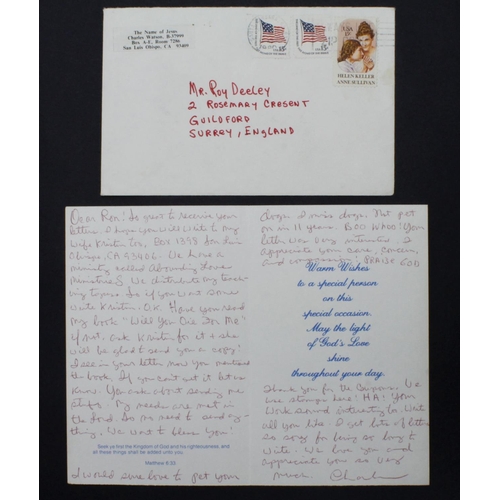 The Name of Jesus
Charles Watson, B-37999
Box A-E Room 7286
San Luis Obispo, CA 93409
USA
15c
HELEN KELLER
ANNE SULLIVAN
Mr. Roy Deeley
2 Rosemary Cresent
Guildford
Surrey, England
Dear Ron! Is great to receive your
letter. I hope you will write to my
wife Kristin too, Box 1398 San Luis
Obispo, CA 93406. We have a
ministry called Abounding Love
Ministries. We distribute my teach-
ing tapes. So if you want some
write Kristin. O.K. Have you read
my book "Will You Die For Me"?
If not, ask Kristin for it & she
will be glad to send you a copy!
I see in your letter now you mentioned
the book. If you can't get it let us
know. You ask about sending me
My needs are met in
the Lord. So no need to send any-
thing. We want to bless you!
Seek ye first the Kingdom of God and his righteousness, and
all these things shall be added unto you.
Matthew 6:33
I would sure love to pet your
dogs. I miss dogs. Not pet
one in 11 years. BOO WHOO! Your
letter was very interesting. I
appreciate your care, concern,
and compassion! PRAISE GOD
Warm Wishes
to a special person
on this
special occasion.
May the light
of God's Love
shine
throughout your day.
Thank you for the We
use stamps here! HA! Your
work sound interesting too. Write
all you like. I get lots of letters
so sorry for being so long to
write. We love you and
appreciate you so very
much. Charles